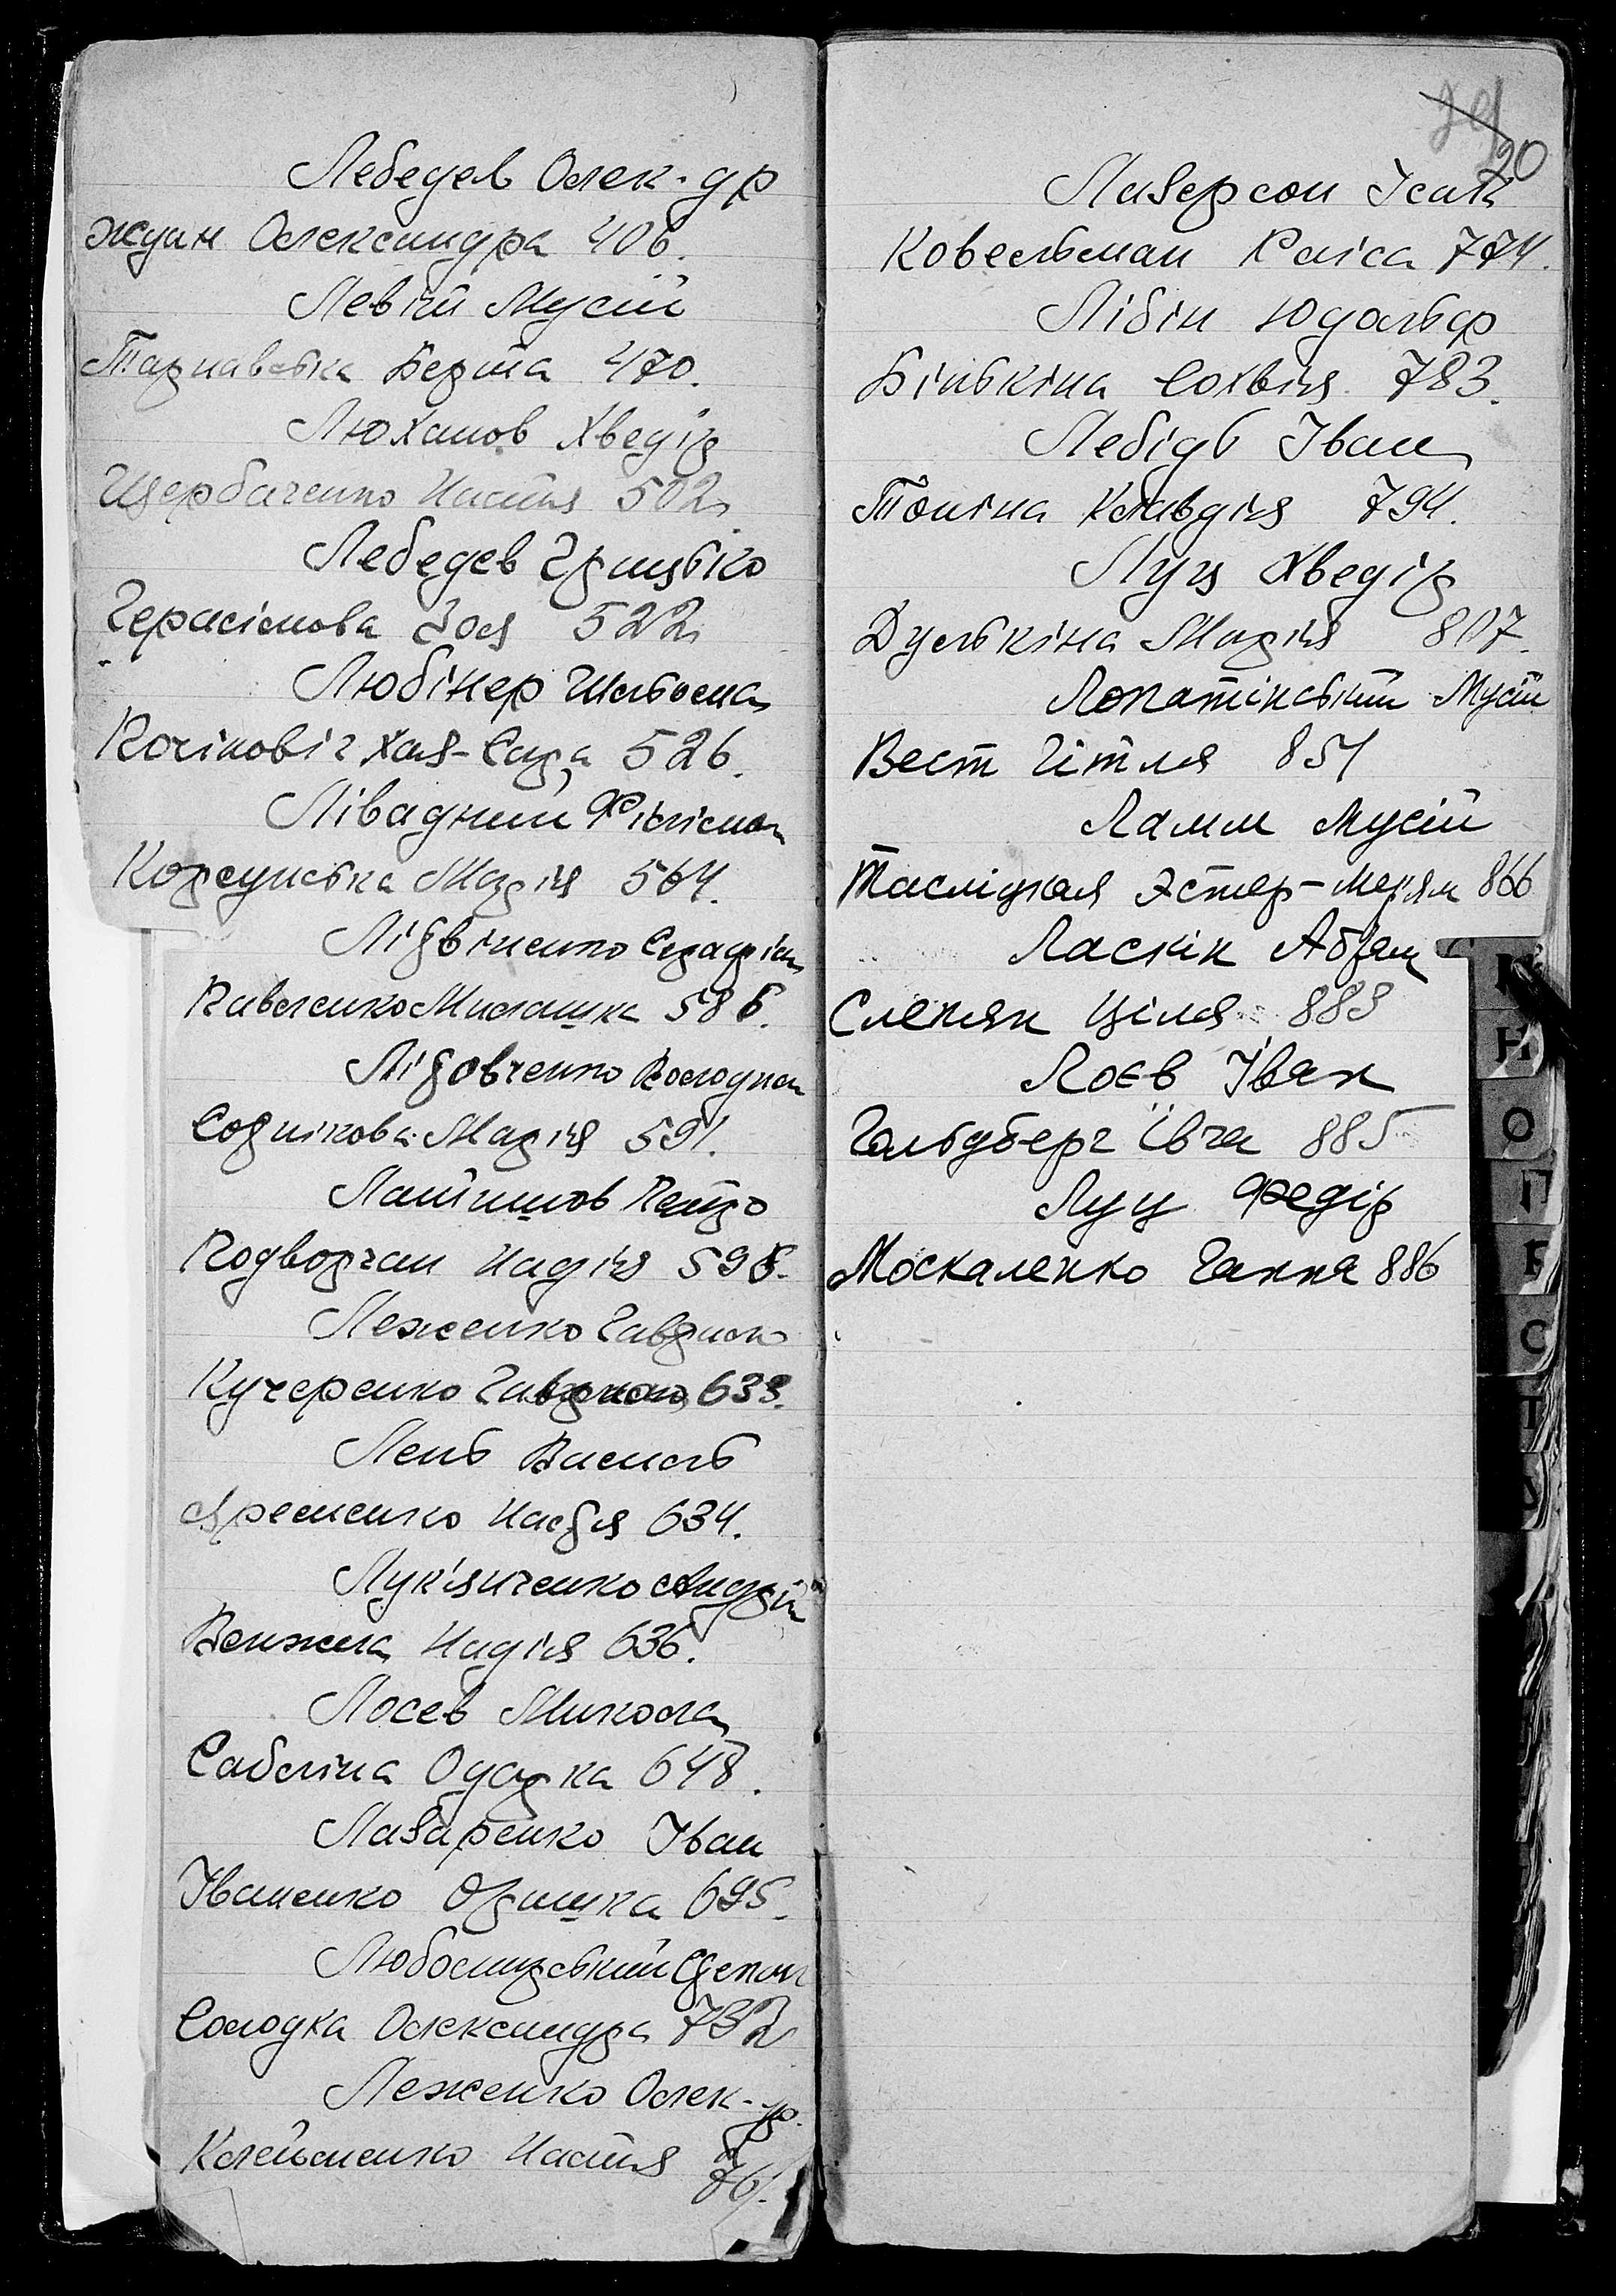 Лебедев Олек-др
Ждан Олександра 406.
Левіт Мусій
Тарнавська Берта 470.
Люханов Хведір
Щербаченко Настя 502
Лебедев Грицько
Герасімова Зоя 522
Любінер Шльома
Рочіновіч Хая-Сара 526.
Лівадний Філімон
Корсунська Марія 564.
Літвіненко Серафім
Павленко Милашка 586.
Літовченко Володим
Сотнікова Марія 591.
Латишов Петро
Подворчан Надія 598.
Леженко Гаврило
Кучеренко 633.
Лень Василь
Яременко Настя 634.
Лук'янченко Андрій
Венжега Надія 636.
Лосев Микола
Сабеліна Одарка 648.
Лазаренко Іван
Іваненко Оришка 695.
Любомирський Степан
Солодка Олександра 732
Леженко Олек-др.
Клейменко Настя 761.
20
Лазерсон Ісак
Ковельман Раіса 774.
Лібін Юдольф
Бількіна Сохвія 783.
Лебідь Іван
Тоніна Клавдія 794.
Луц Хведір
Дулькіна Марія 807.
Лопатінський Мусій
Вест Гітля 851
Ламм Мусій
Тасліцкая Эстер-Мерям 866
Ласкін Абрам
Слепян Ціля 883
Лоєв Іван
Гольдберг Івга 885
Луц Федір
Москаленко Ганна 886
Н
О
П
Р
С
Т